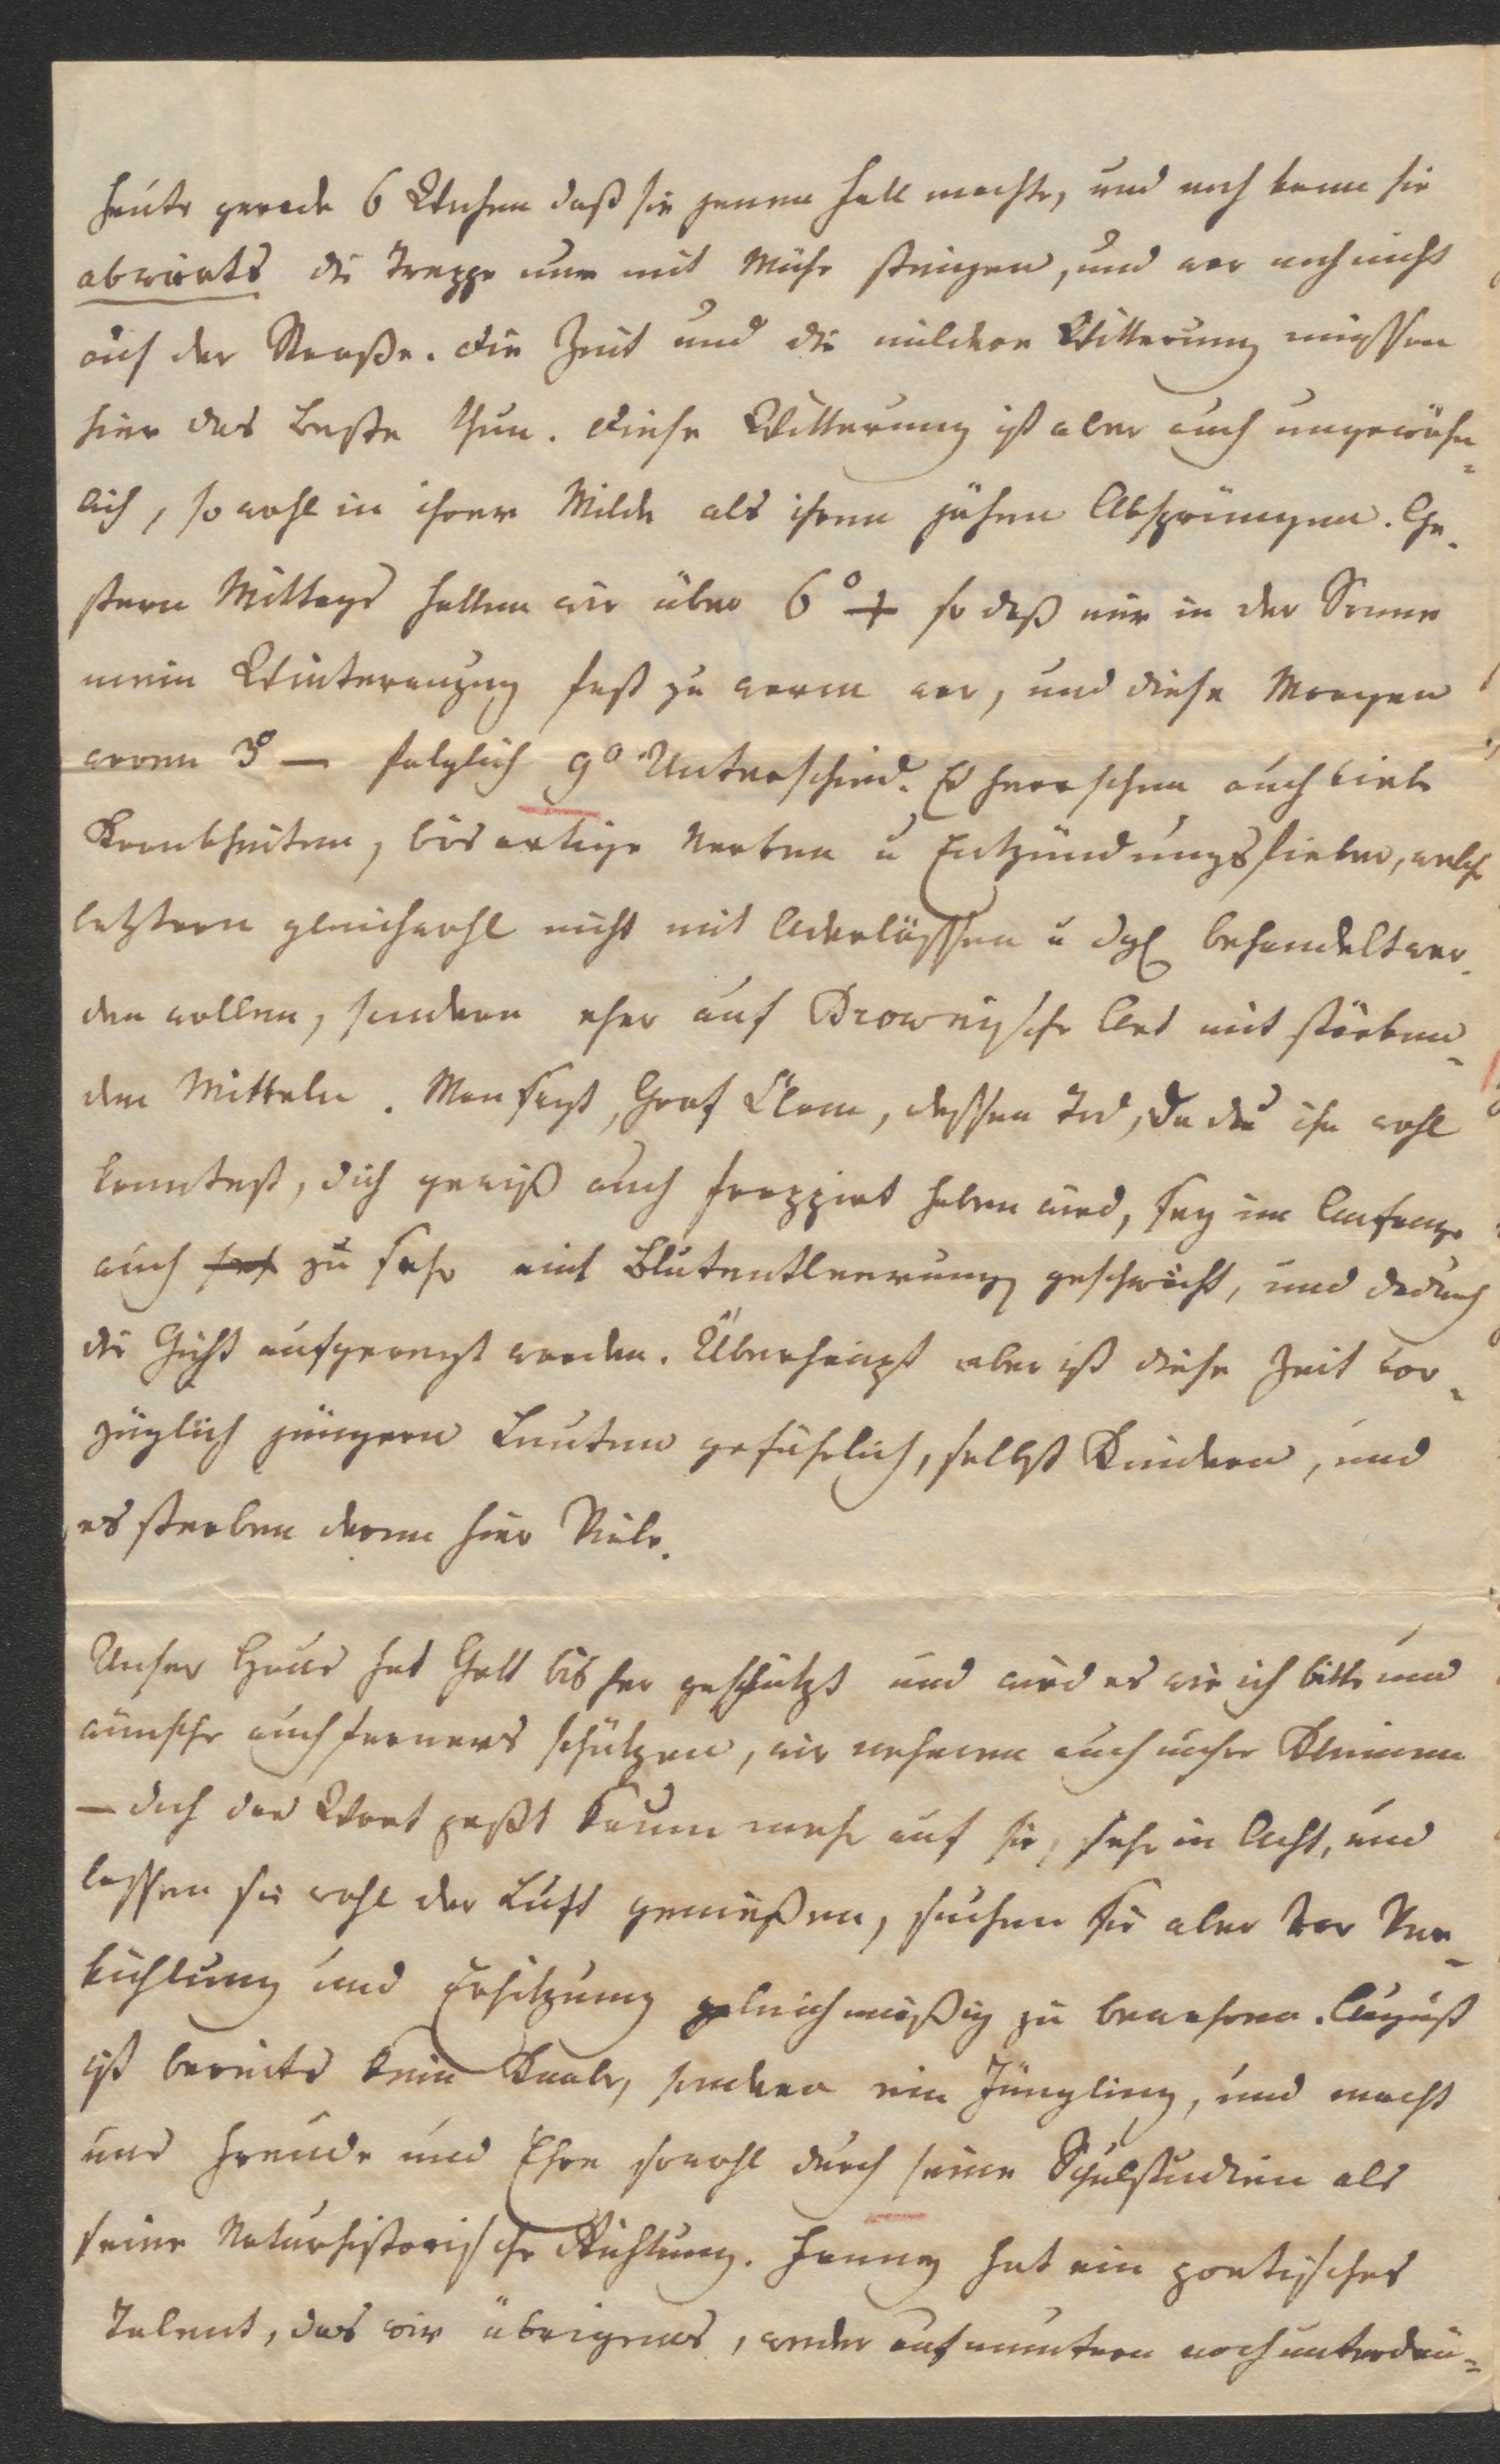 heute gerade 6 Wochen daß sie jenen Fall machte, und noch kann sie
abwärts die Treppe nur mit Mühe steigen, und war noch nicht
auf der Straße. Die Zeit und die mildere Witterung müssen
hier das Beste thun. Diese Witterung ist aber auch ungewöhn-
lich, sowohl in ihrer Milde als ihren jähen Absprüngen. Ge-
stern Mittags hatten wir über 6° + so daß mir in der Sonne
mein Winteranzug fast zu warm war, und diese Morgen
waren 3° — folglich 9° Unterschied. Es herrschen auch viele
Krankheiten, bösartige Nerven u Entzündungsfieber, welche
letztern gleichwohl nicht mit Aderlässen u dgl behandelt wer-
den wollen, sondern eher auf Brownische Art mit stärken-
den Mitteln. Man sagt, Graf Clam, dessen Tod, da du ihn wohl
kanntest, dich gewiß auch frappirt haben wird, sey im Anfange
auch zu sehr mit Blutentleerung geschwächt, und dadurch
die Gicht aufgeregt worden. Überhaupt aber ist diese Zeit vor-
züglich jüngern Leuten gefährlich, selbst Kindern, und
es sterben deren hier Viele.
Unser Haus hat Gott bisher geschützt und wird es wie ich bitte und
wünsche auch ferners schützen, wir nehmen auch unsre Kleinen
— doch das Wort paßt kaum mehr auf sie, sehr in Acht, und
lassen sie wohl der Luft genießen, suchen sie aber vor Ver-
kühlung und Erhitzung gleichmäßig zu bewahren. August
ist bereits kein Knabe, sondern ein Jüngling, und macht
uns Freude und Ehre sowohl durch seine Schulstudien als
seine Naturhistorische Richtung. Fanny hat ein poetisches
Talent, das wir übrigens, weder aufmuntern noch unterdrü-